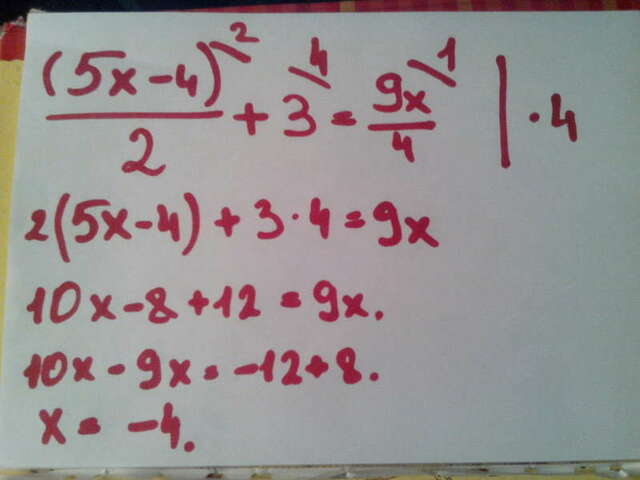 (5x-4)\2 / 2 + 3\4 = 9x\1 / 4 | ·4
2(5x-4)+3·4=9x
10x-8+12=9x.
10x-9x=-12+8.
x=-4.